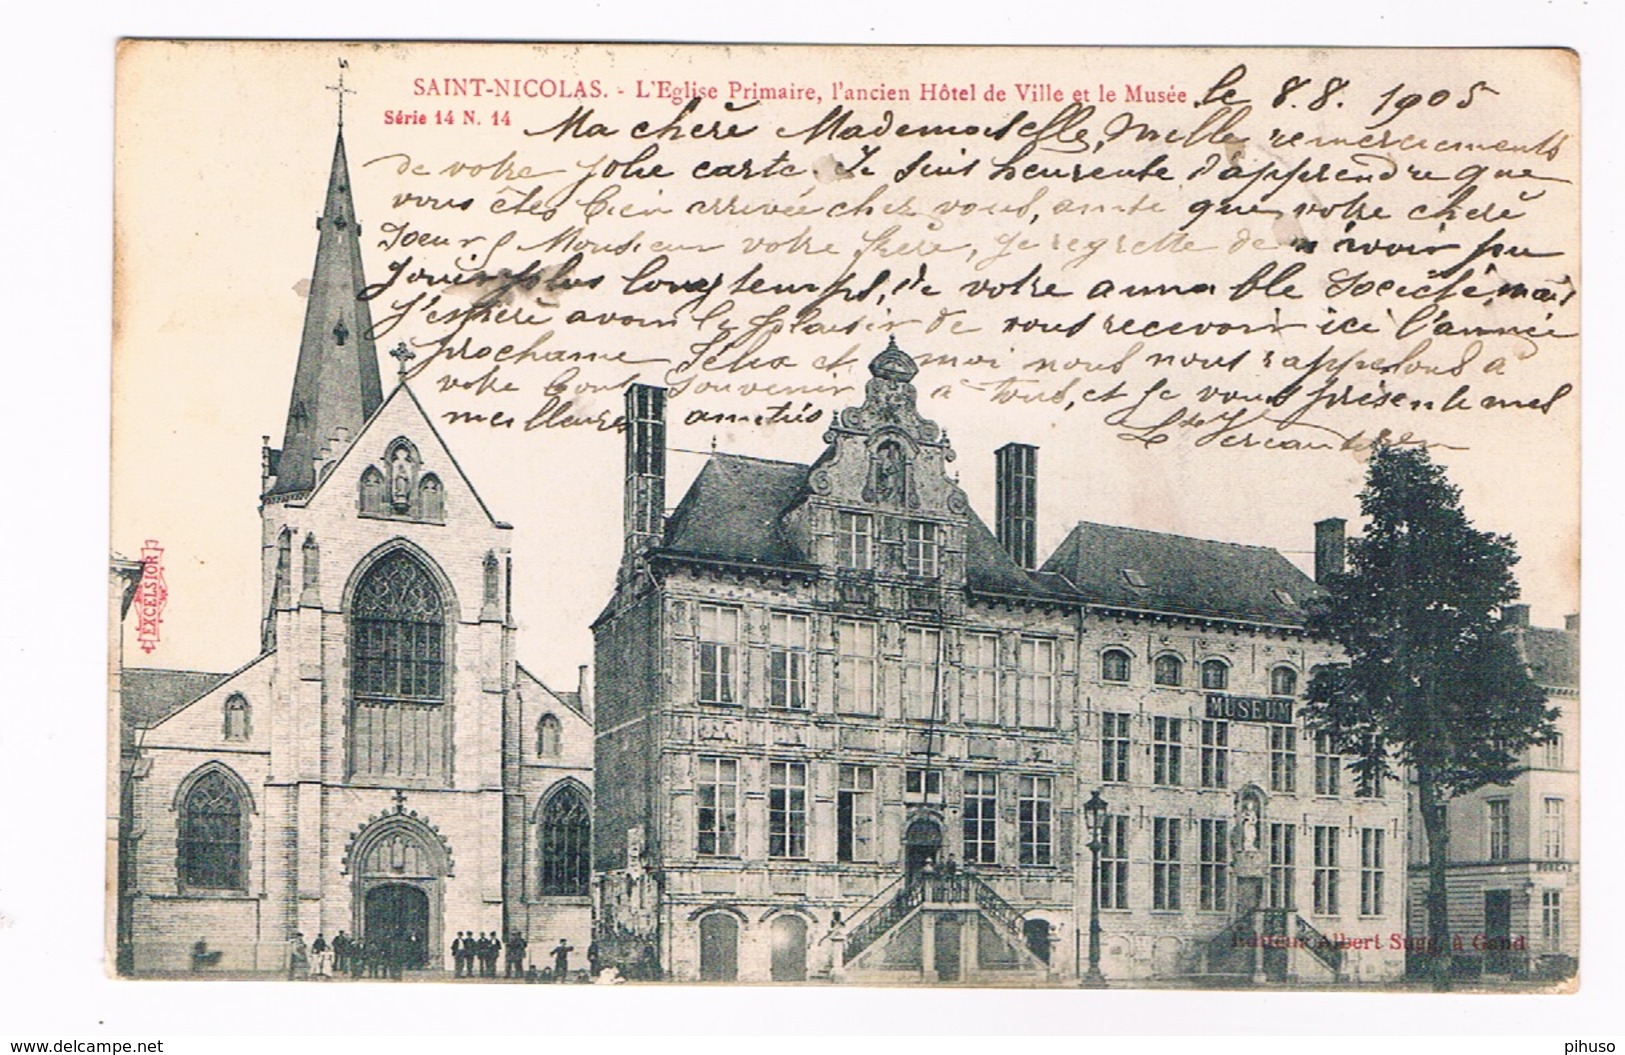 SAINT-NICOLAS. - L'Eglise Primaire, l'ancien Hôtel de Ville et le Musée
le 8.8. 1905
Série 14 N. 14
Ma cherè Mademoiselle, Mille remerciements
de votre jolie carte. Je suis heureuse d'apprendre que
vous êtes bien arrivée chez vous, ainsi que votre cherè
soeur & Monsieur votre frère, je regrette de n'avoir pu
jouir plus longtemps, de votre aimable Société, mais
j'esperè avoir le plaisir de vous recevoir ici l'année
prochaine Félix et moi nous nous rappelons a
votre bons souvenir a tous, et je vous présente mes
meilleures amitiés
EXCELSIOR
MUSEUM
Editeur Albert Sugg, à Gand
www.delcampe.net
pihuso